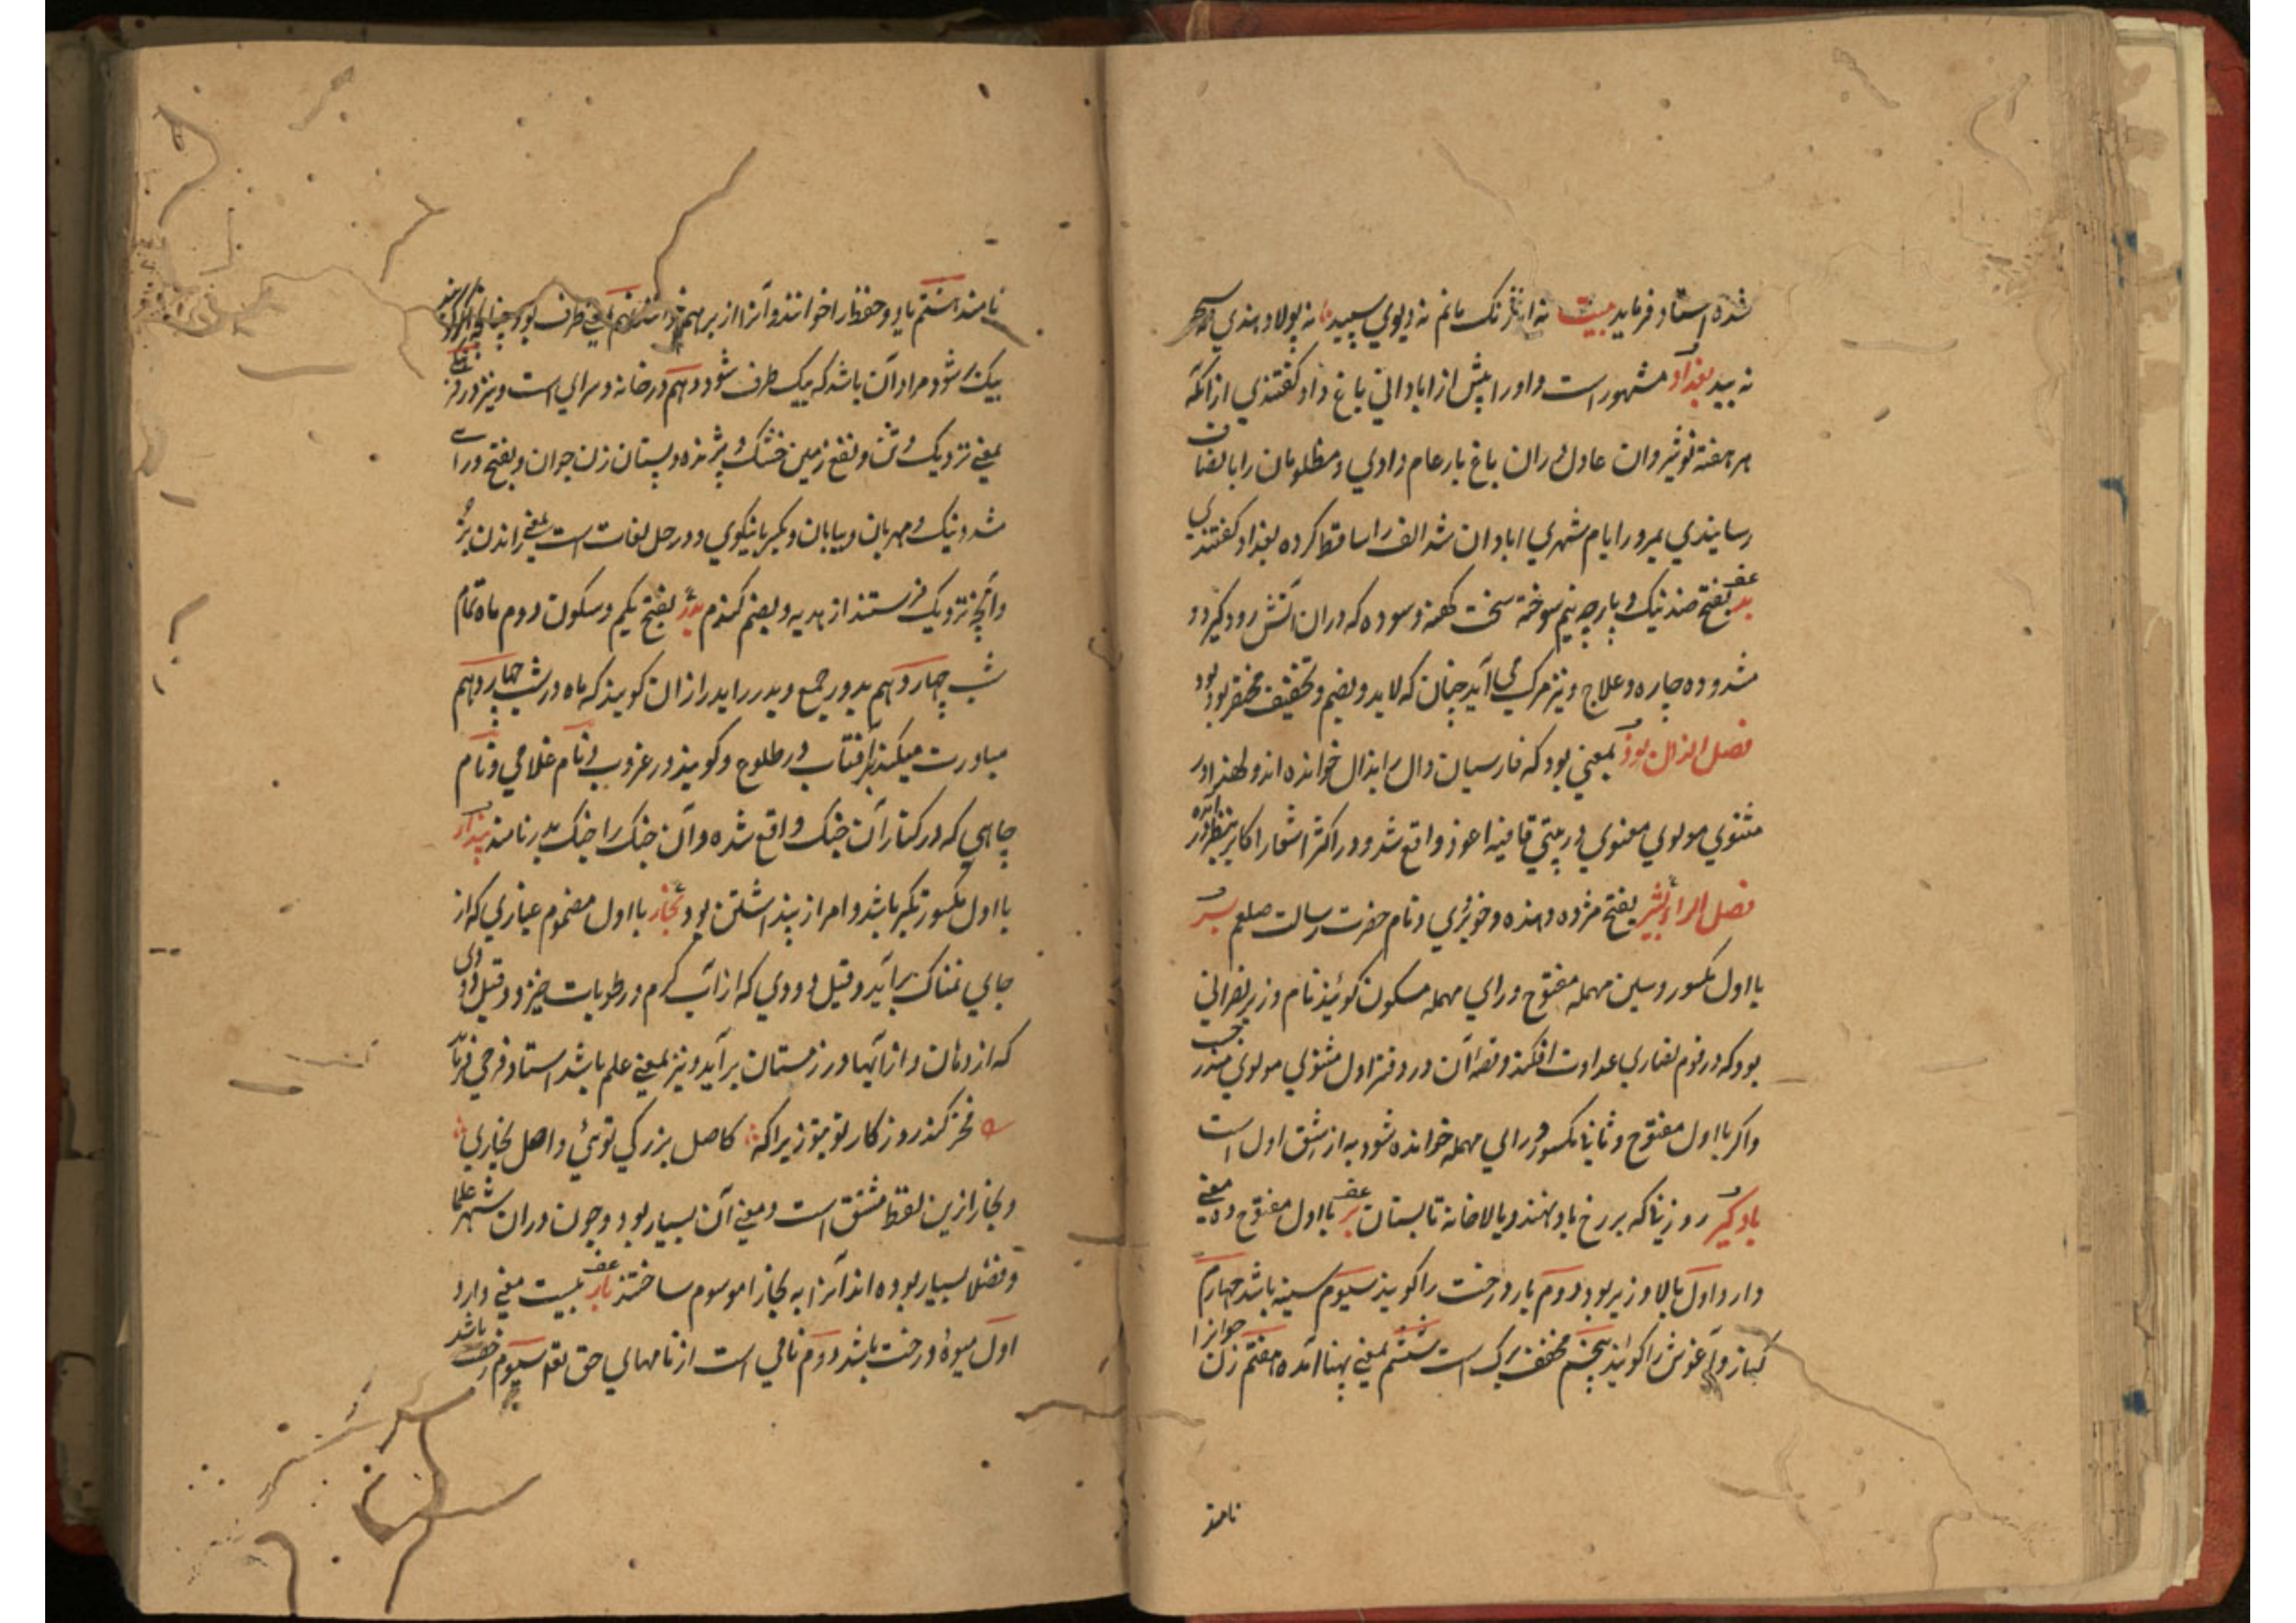 شده استاد فرماید بیت نه ارژنگ مانم نه دیوی سپید نه پولاد هندی
نه بید بغداد مشهور است و او را پیش از ابادانی باغ داد گفتندی از انکه
هر هفته نوشیروان عادل دران باغ بار عام دادی و مظلومان را بانصاف
رسانیدی بمرور ایام شهری ابادان شد الف را ساقط کرده بغداد گفتندی
بد بفتح ضد نیک و پارچه نیم سوخته سخت کهنه و سوده که دران آتش زود گیرد و
مشدوده چاره و علاج و نیز مرکب می آید چنان که لابد و بضم و تخفیف مختصر بود بود
فصل الذال بوذ بمعنی بود که فارسیان دال را بذال خوانده اند و لهذا در
مثنوی مولوی معنوی در بیتی قافیه اعوذ واقع شد و در اکثر اشعار اکابر بنظر در آمده
فصل الراء بشیر بفتح مژده دهنده و خوبروی و نام حضرت رسالت صلعم بسر
با اول مکسور و سین مهمله مفتوح و رای مهمله مسکون گوئیند نام وزیر نصرانی
بود که در قوم نصاری عداوت افکند و قصه آن در دفتر اول مثنوی مولوی مندرجست
و اکر با اول مفتوح و ثانیا مکسور و رای مهمله خوانده شود به از شق اول است
بادگیر روزنیا که بر رخ باد نهند و بالاخانه تابستان بر با اول مفتوح ده معنی
دارد اول بالا و زیر بود دوم بار درخت را کویند سیوم سینه باشد چهارم
کنار و آغوش را کوئید پنجم مخفف برک است ششم بمعنی پهنا آمده هفتم زن جوان را
نامند
نامند هشتم یاد و حفظ را خوانند و آنرا از بر هم خوانند نهم بمعنی طرف بود چنانچه
بیک بر شود مراد آن باشد که بیک طرف شود دهم در خانه و سرای است و نیز در
بمعنی نزدیک و تن و نفع زمین خشک و پژمرده و پستان زن جوان و بفتح و را
مشدد نیک و مهربان و بیابان و بکسر با نیکوی و در حل لغات است بمعنی راندن بز
و آنچه نزدیک فرستند از هدیه و بضم کندم بدر بفتح یکم و سکون دوم ماه تمام
شب چهاردهم بدور جمع و بدر را بدر ازان کویند که ماه در شب چهاردهم
مبادرت میکند بر آفتاب در طلوع و کویند در غروب و نام غلامی و نام
چاهی که در کنار آن جنک واقع شده و آن جنک را جنک بدر نامند پندار
با اول مکسور تکبر باشد و امر از پنداشتن بود بخار با اول مضموم عباری که از
جای نمناک برآید و قیل دودی که از آب کرم و رطوبات خیزد و قیل دودی
که از دهان و از آبها در زمستان برآید و نیز بمعنی علم باشد استاد فرخی فرماید
فخر کند روزکار تو بتو زیراکه کاصل بزرکی توئی و اصل بخاری
و بخارا ازین لفظ مشتق است و معنی آن بسیار بود و چون دران شهر علما
و فضلا بسیار بوده اند آنرا به بخارا موسوم ساختند بار بیست معنی دارد
اول میوه درخت باشد دوم نامی است از نامهای حق تعم سیوم رخصت باشد